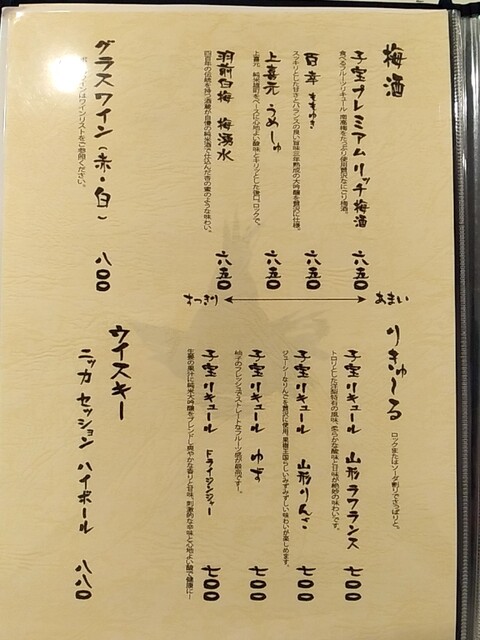 梅酒
子宝プレミアムリッチ梅酒 六五〇
食べるフルーツリキュール 南高梅をたっぷり使用贅沢なにごり梅酒。
六五〇
スッキリとした甘さとバランスの良い旨味三年熟成の大吟醸を贅沢に仕様。
上喜元 うめしゅ 六五〇
羽前白梅 梅湧水 六五〇
四百年の伝統を持つ酒蔵が自慢の純米酒で仕込んだ杏の蜜のような味わい。
グラスワイン(赤・白) 八〇〇
はワインリストをご参照ください。
あまい
すっきり
りきゅ〜る
ロックまたはソーダ割りでさっぱりと。
子宝リキュール 山形ラフランス 七〇〇
トロリとした洋梨特有の風味、柔らかな酸味と甘味が絶妙の味わいです。
子宝リキュール 山形りんご 七〇〇
ジューシーなりんごを贅沢に使用。果樹王国らしいみずみずしい味わいが楽しめます。
子宝リキュール ゆず 七〇〇
柚子のフレッシュでストレートなフルーツ感が最高です!。
子宝リキュール ドライジンジャー 七〇〇
生姜の果汁に純米大吟醸をブレンドし爽やかな香りと甘味、刺激的な辛味と心地よい酸で健康に!
ウイスキー
ニッカ セッション ハイボール 八八〇